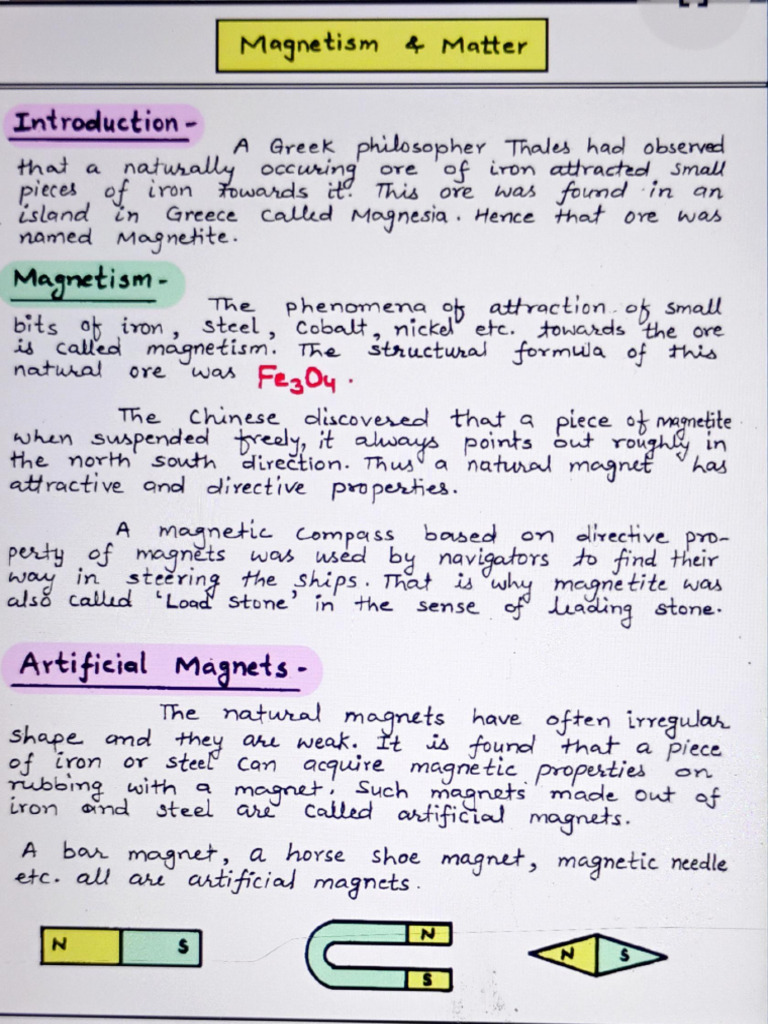 Magnetism & Matter
Introduction -
A Greek philosopher Thales had observed
that a naturally occuring ore of iron attracted small
pieces of iron towards it. This ore was found in an
island in Greece called Magnesia. Hence that ore was
named Magnetite.
Magnetism -
The phenomena of attraction of small
bits of iron, steel, cobalt, nickel etc. towards the ore
is called magnetism. The structural formula of this
natural ore was Fe3O4.
The Chinese discovered that a piece of magnetite
when suspended freely, it always points out roughly in
the north south direction. Thus a natural magnet has
attractive and directive properties.
A magnetic compass based on directive pro-
perty of magnets was used by navigators to find their
way in steering the ships. That is why magnetite was
also called 'Load Stone' in the sense of leading stone.
Artificial Magnets -
The natural magnets have often irregular
shape and they are weak. It is found that a piece
of iron or steel can acquire magnetic properties on
rubbing with a magnet. Such magnets made out of
iron and steel are called artificial magnets.
A bar magnet, a horse shoe magnet, magnetic needle
etc. all are artificial magnets.
N S
N
S
N S